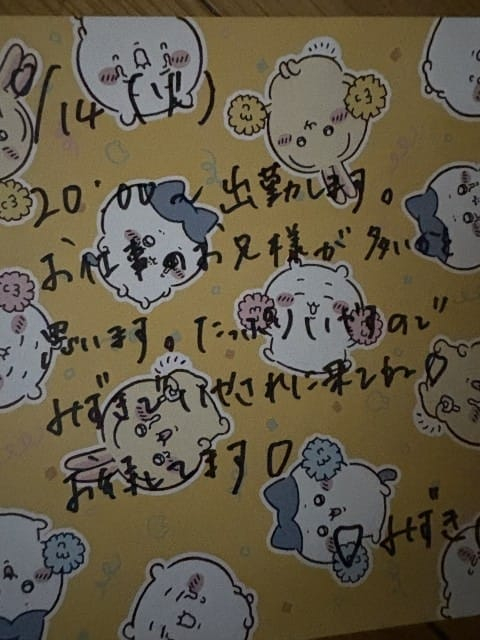 0/14(火)
20:00〜出勤します。
お仕事のお兄様が多いと
思います。たっぷりいやすので
みずきでいやされに来てね♡
お待ちしてます♡
♡みずき